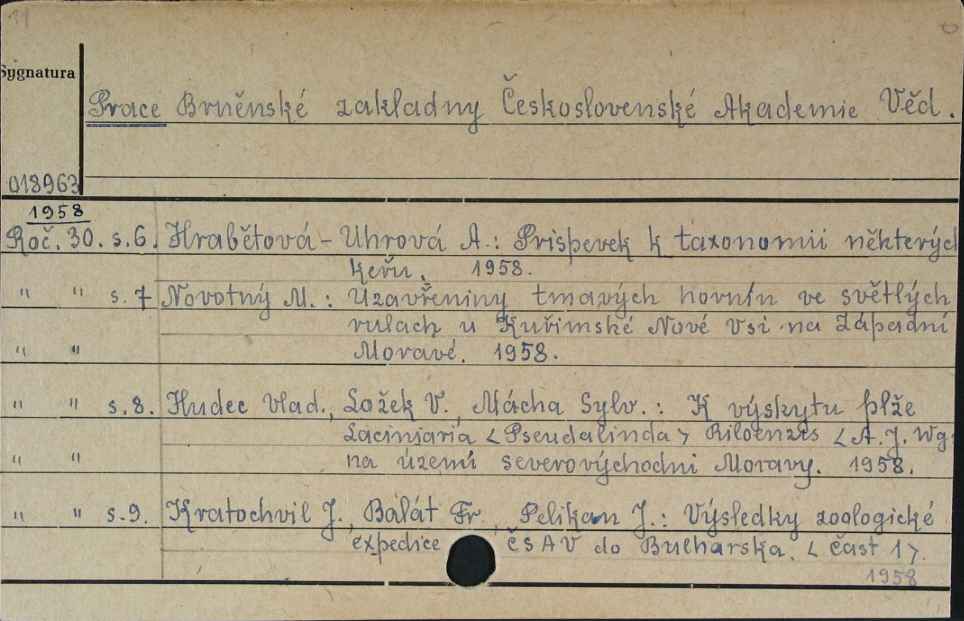 Sygnatura
Prace Brněnské zakladny Československé Akademie Věd.
018963
1958
Roč. 30. s.6. Hrabětová - Uhrová A.: Prispevek k taxonomii některých
keřu. 1958.
" " s.7 Novotný M.: Uzavřeniny tmavých hornín ve světlých
rulach u Kuřimské Nové Vsi na Západní
" " Moravé. 1958.
" " s.8. Hudec Vlad., Ložek V., Mácha Sylv.: K výskytu plže
Laciniaria < Pseudalinda > Riloenzis < A. J. Wg
" " na území severovýchodni Moravy. 1958.
" " s.9. Kratochvil J., Balát Fr., Pelikan J.: Výsledky zoologické
expedice ČSAV do Bulharska. < část 1 >.
1958